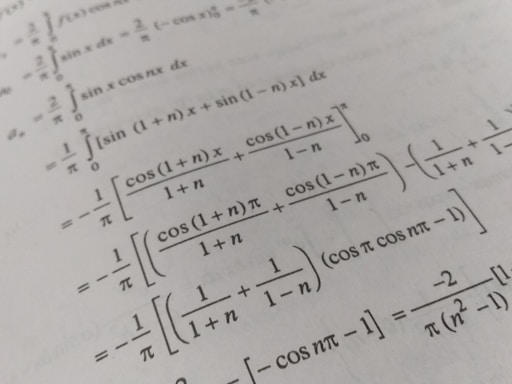 = 2/π ∫ f(x) cos nx
= 2/π ∫₀ sin x dx = 2/π (− cos x)₀^π =
aₙ = 2/π ∫₀^π sin x cos nx dx
= 1/π ∫₀^π [sin (1 + n) x + sin (1 − n) x] dx
= − 1/π [ cos (1 + n) x / 1 + n + cos (1 − n) x / 1 − n ]₀^π
= − 1/π [( cos (1 + n) π / 1 + n + cos (1 − n) π / 1 − n ) − ( 1 / 1 + n + 1 / 1 −
= − 1/π [( 1 / 1 + n + 1 / 1 − n ) (cos π cos nπ − 1) ]
[− cos nπ − 1] = −2 / π (n² − 1) [1